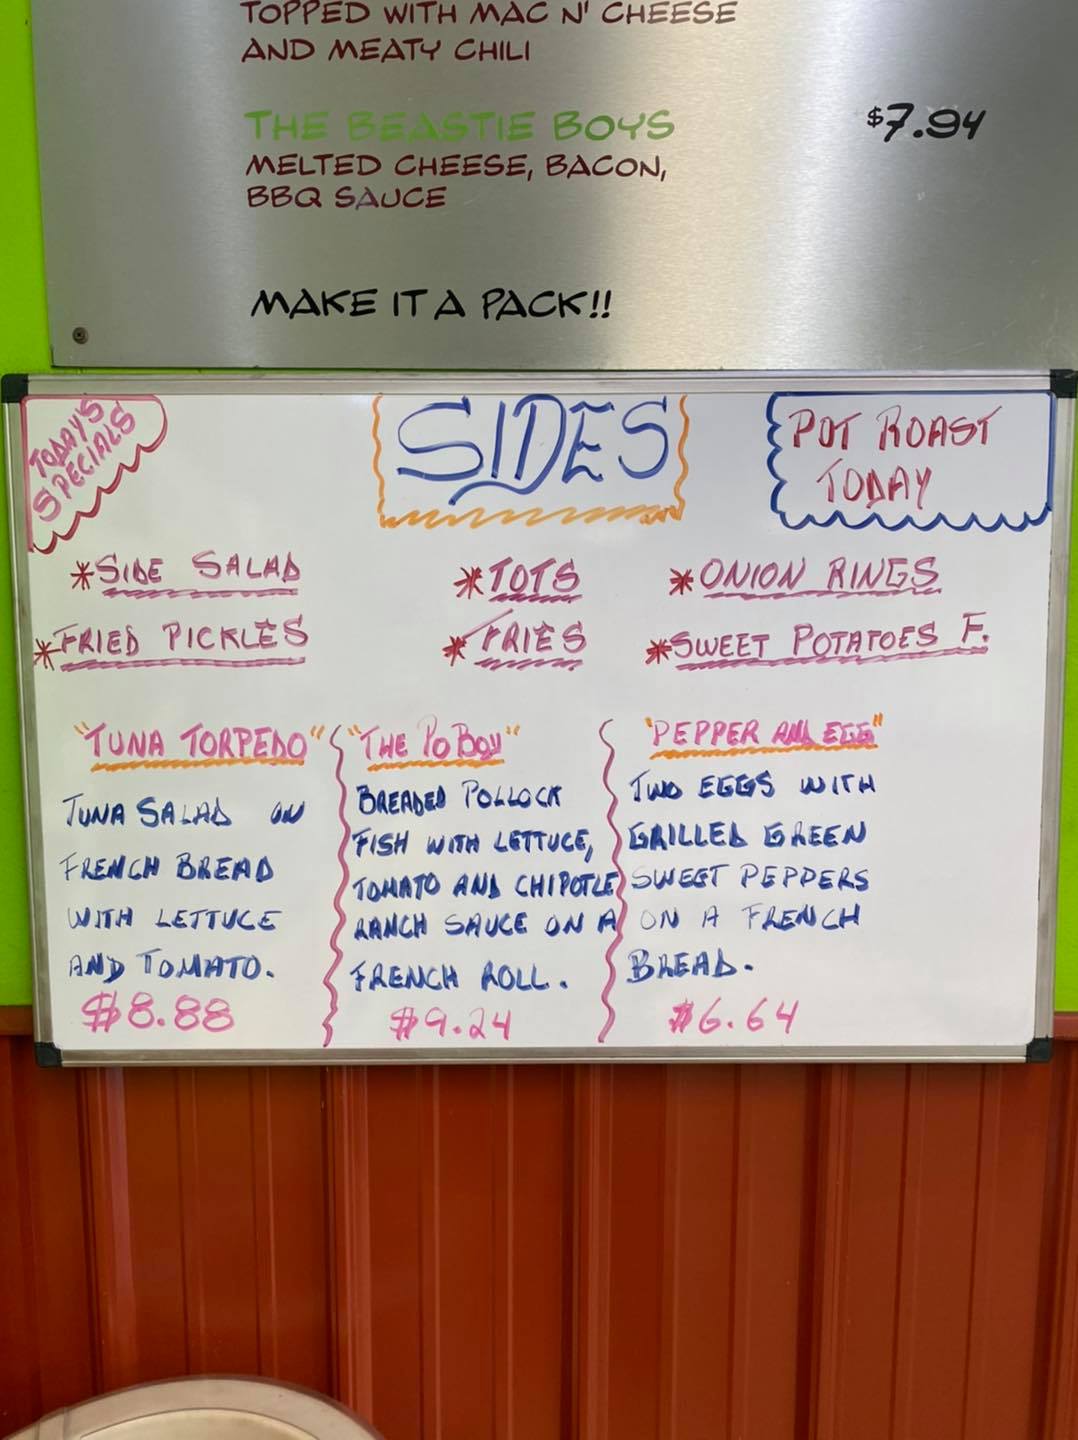 TOPPED WITH MAC N' CHEESE
AND MEATY CHILI
THE BEASTIE BOYS $7.94
MELTED CHEESE, BACON,
BBQ SAUCE
MAKE IT A PACK!!
TODAY'S
SPECIALS
SIDES
POT ROAST
TODAY
*SIDE SALAD *TOTS *ONION RINGS
*FRIED PICKLES *FRIES *SWEET POTATOES F.
"TUNA TORPEDO"
TUNA SALAD ON
FRENCH BREAD
WITH LETTUCE
AND TOMATO.
$8.88
"THE PO BOY"
BREADED POLLOCK
FISH WITH LETTUCE,
TOMATO AND CHIPOTLE
RANCH SAUCE ON A
FRENCH ROLL.
$9.24
"PEPPER AND EGG"
TWO EGGS WITH
GRILLED GREEN
SWEET PEPPERS
ON A FRENCH
BREAD.
$6.64